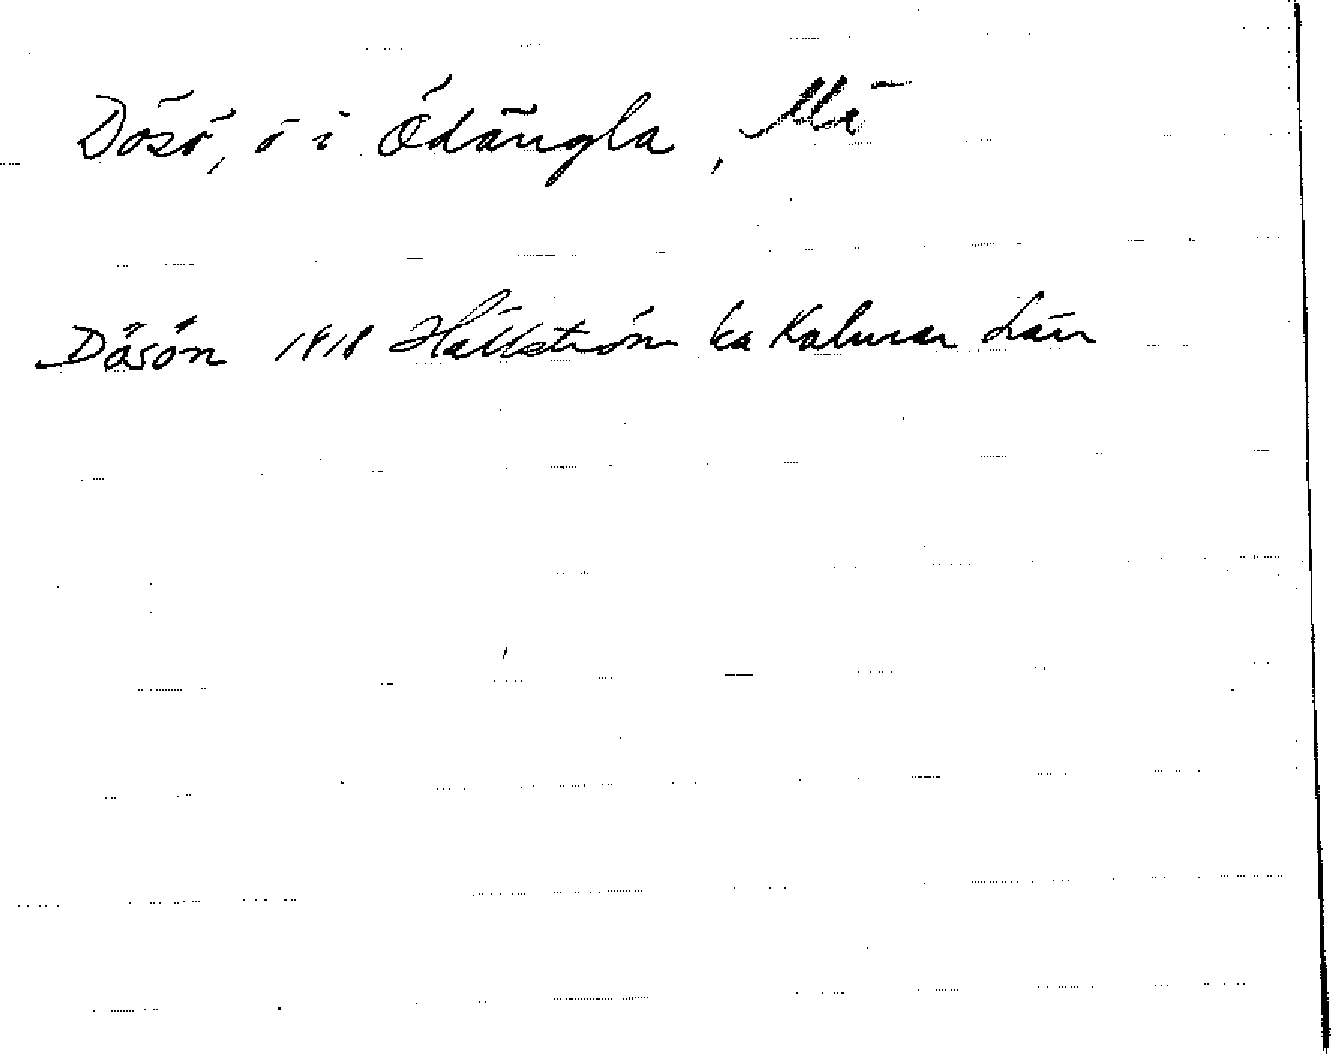 Dösö, ö i Ödängla, Må
Dösön 1818 Hällström ka Kalmar län